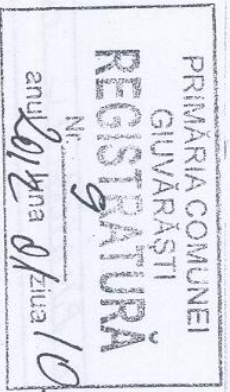 PRIMĂRIA COMUNEI
GIUVĂRĂȘTI
REGISTRATURĂ
Nr. 9
anul 2012 luna 01 ziua 10